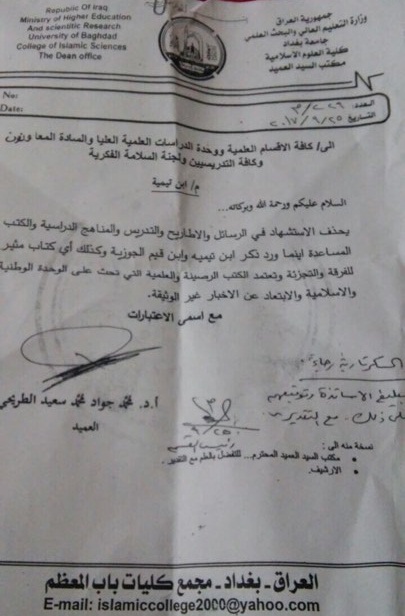 Republic Of Iraq
Ministry of Higher Education
And scientific Research
University of Baghdad
College of Islamic Sciences
The Dean office
جمهورية العراق
وزارة التعليم العالي والبحث العلمي
جامعة بغداد
كلية العلوم الاسلامية
مكتب السيد العميد
No:
Date:
العدد:
التاريخ ٢٠١٧/٩/٢٥
الى/ كافة الاقسام العلمية ووحدة الدراسات العلمية العليا والسادة المعاونون
وكافة التدريسيين ولجنة السلامة الفكرية
م/ ابن تيمية
السلام عليكم ورحمة الله وبركاته...
يحذف الاستشهاد في الرسائل والاطاريح والتدريس والمناهج الدراسية والكتب
المساعدة اينما ورد ذكر ابن تيميه وابن قيم الجوزية وكذلك أي كتاب مثير
للفرقة والتجزئة وتعتمد الكتب الرصينة والعلمية التي تحث على الوحدة الوطنية
والاسلامية والابتعاد عن الاخبار غير الوثيقة.
مع اسمى الاعتبارات
أ.د. محمد جواد محمد سعيد الطريحي
العميد
السكرتارية رجاءً
تبليغ الاساتذة وتوقيعهم
على ذلك. مع التقدير
رئيس القسم
نسخه منه الى:
• مكتب السيد العميد المحترم... للتفضل بالعلم مع التقدير.
• الارشيف.
العراق - بغداد - مجمع كليات باب المعظم
E-mail: islamiccollege2000@yahoo.com